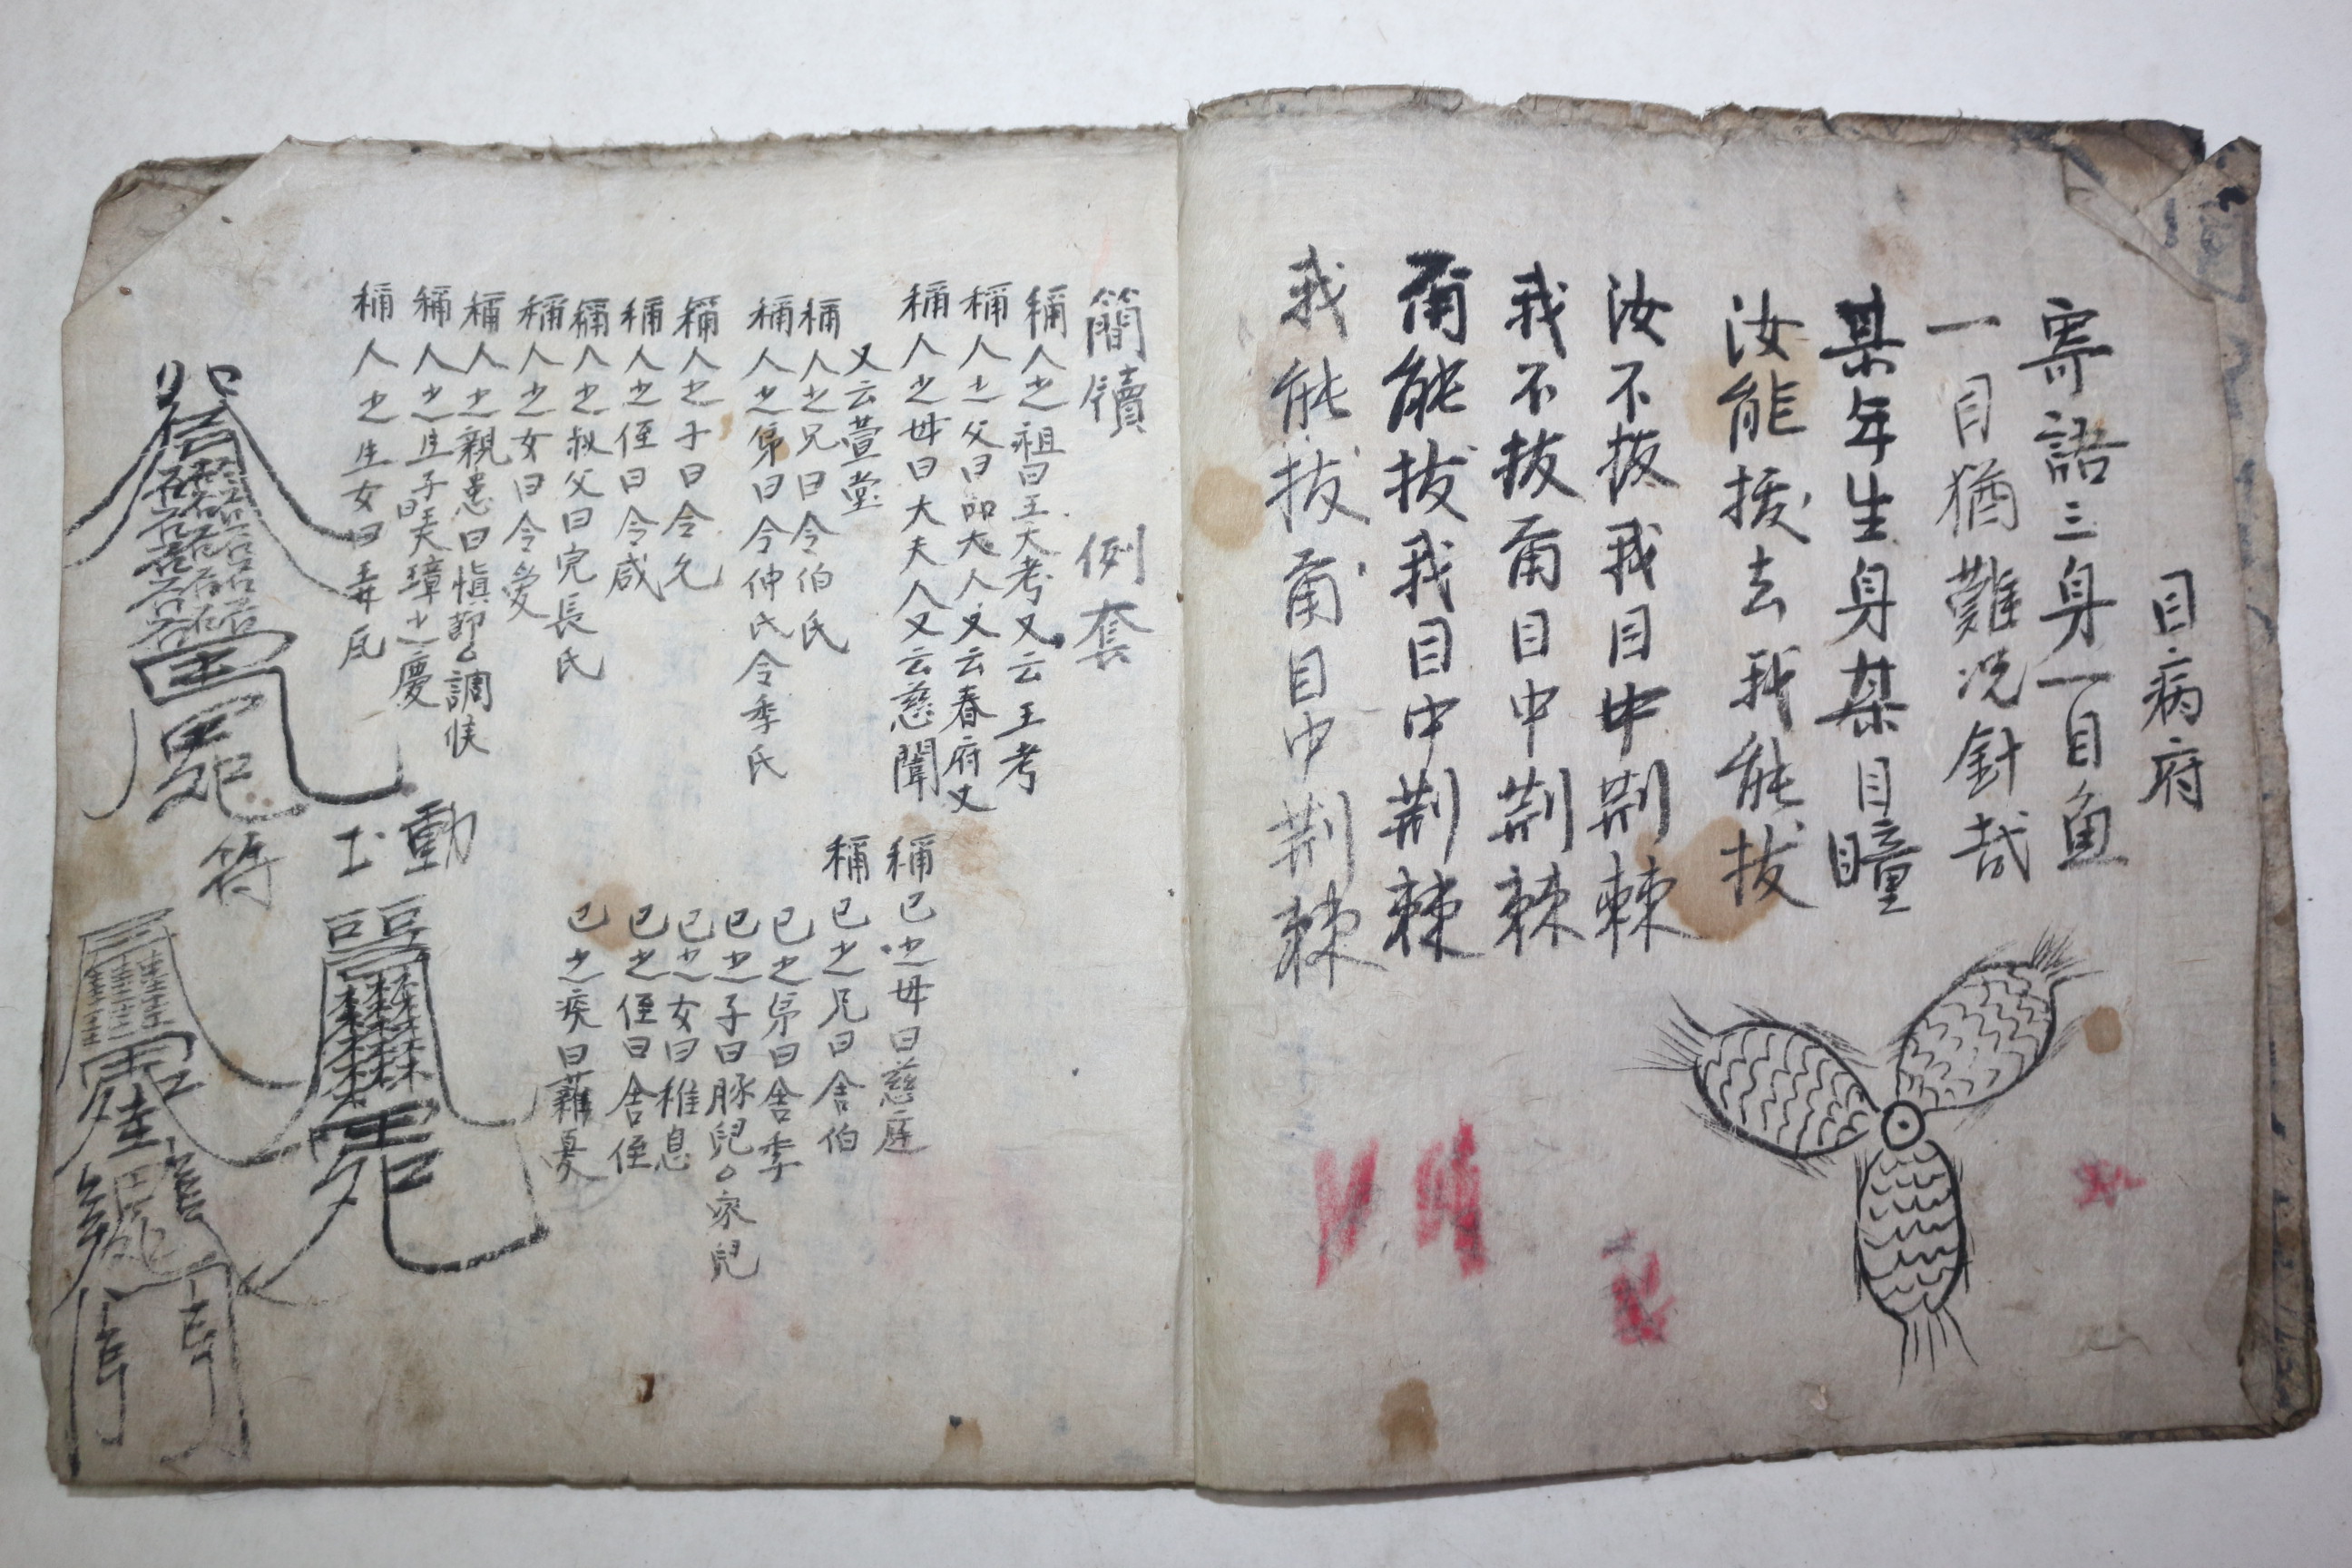 目病府
寄語三身一目魚
一目猶難況針哉
某年生身某目瞳
汝能援去我能拔
汝不拔我目中荆棘
我不拔甭目中荆棘
甭能拔我目中荆棘
我能拔甭目中荆棘
簡牘 例套
稱人之祖曰王大考又云王考
稱人之父曰大人又云春府又
稱人之母曰大夫人又云慈闈
又云萱堂
稱人之兄曰令伯氏
稱人之弟曰令仲氏令季氏
稱人之子曰令允
稱人之侄曰令咸
稱人之叔父曰完長氏
稱人之女曰令愛
稱人之親患曰愼節。調候
稱人之生子曰弄璋之慶
稱人之生女曰弄瓦
稱己之母曰慈庭
稱己之兄曰舍伯
己之弟曰舍季
己之子曰豚兒。家兒
己之女曰稚息
己之侄曰舍侄
己之疾曰憂
動土
符